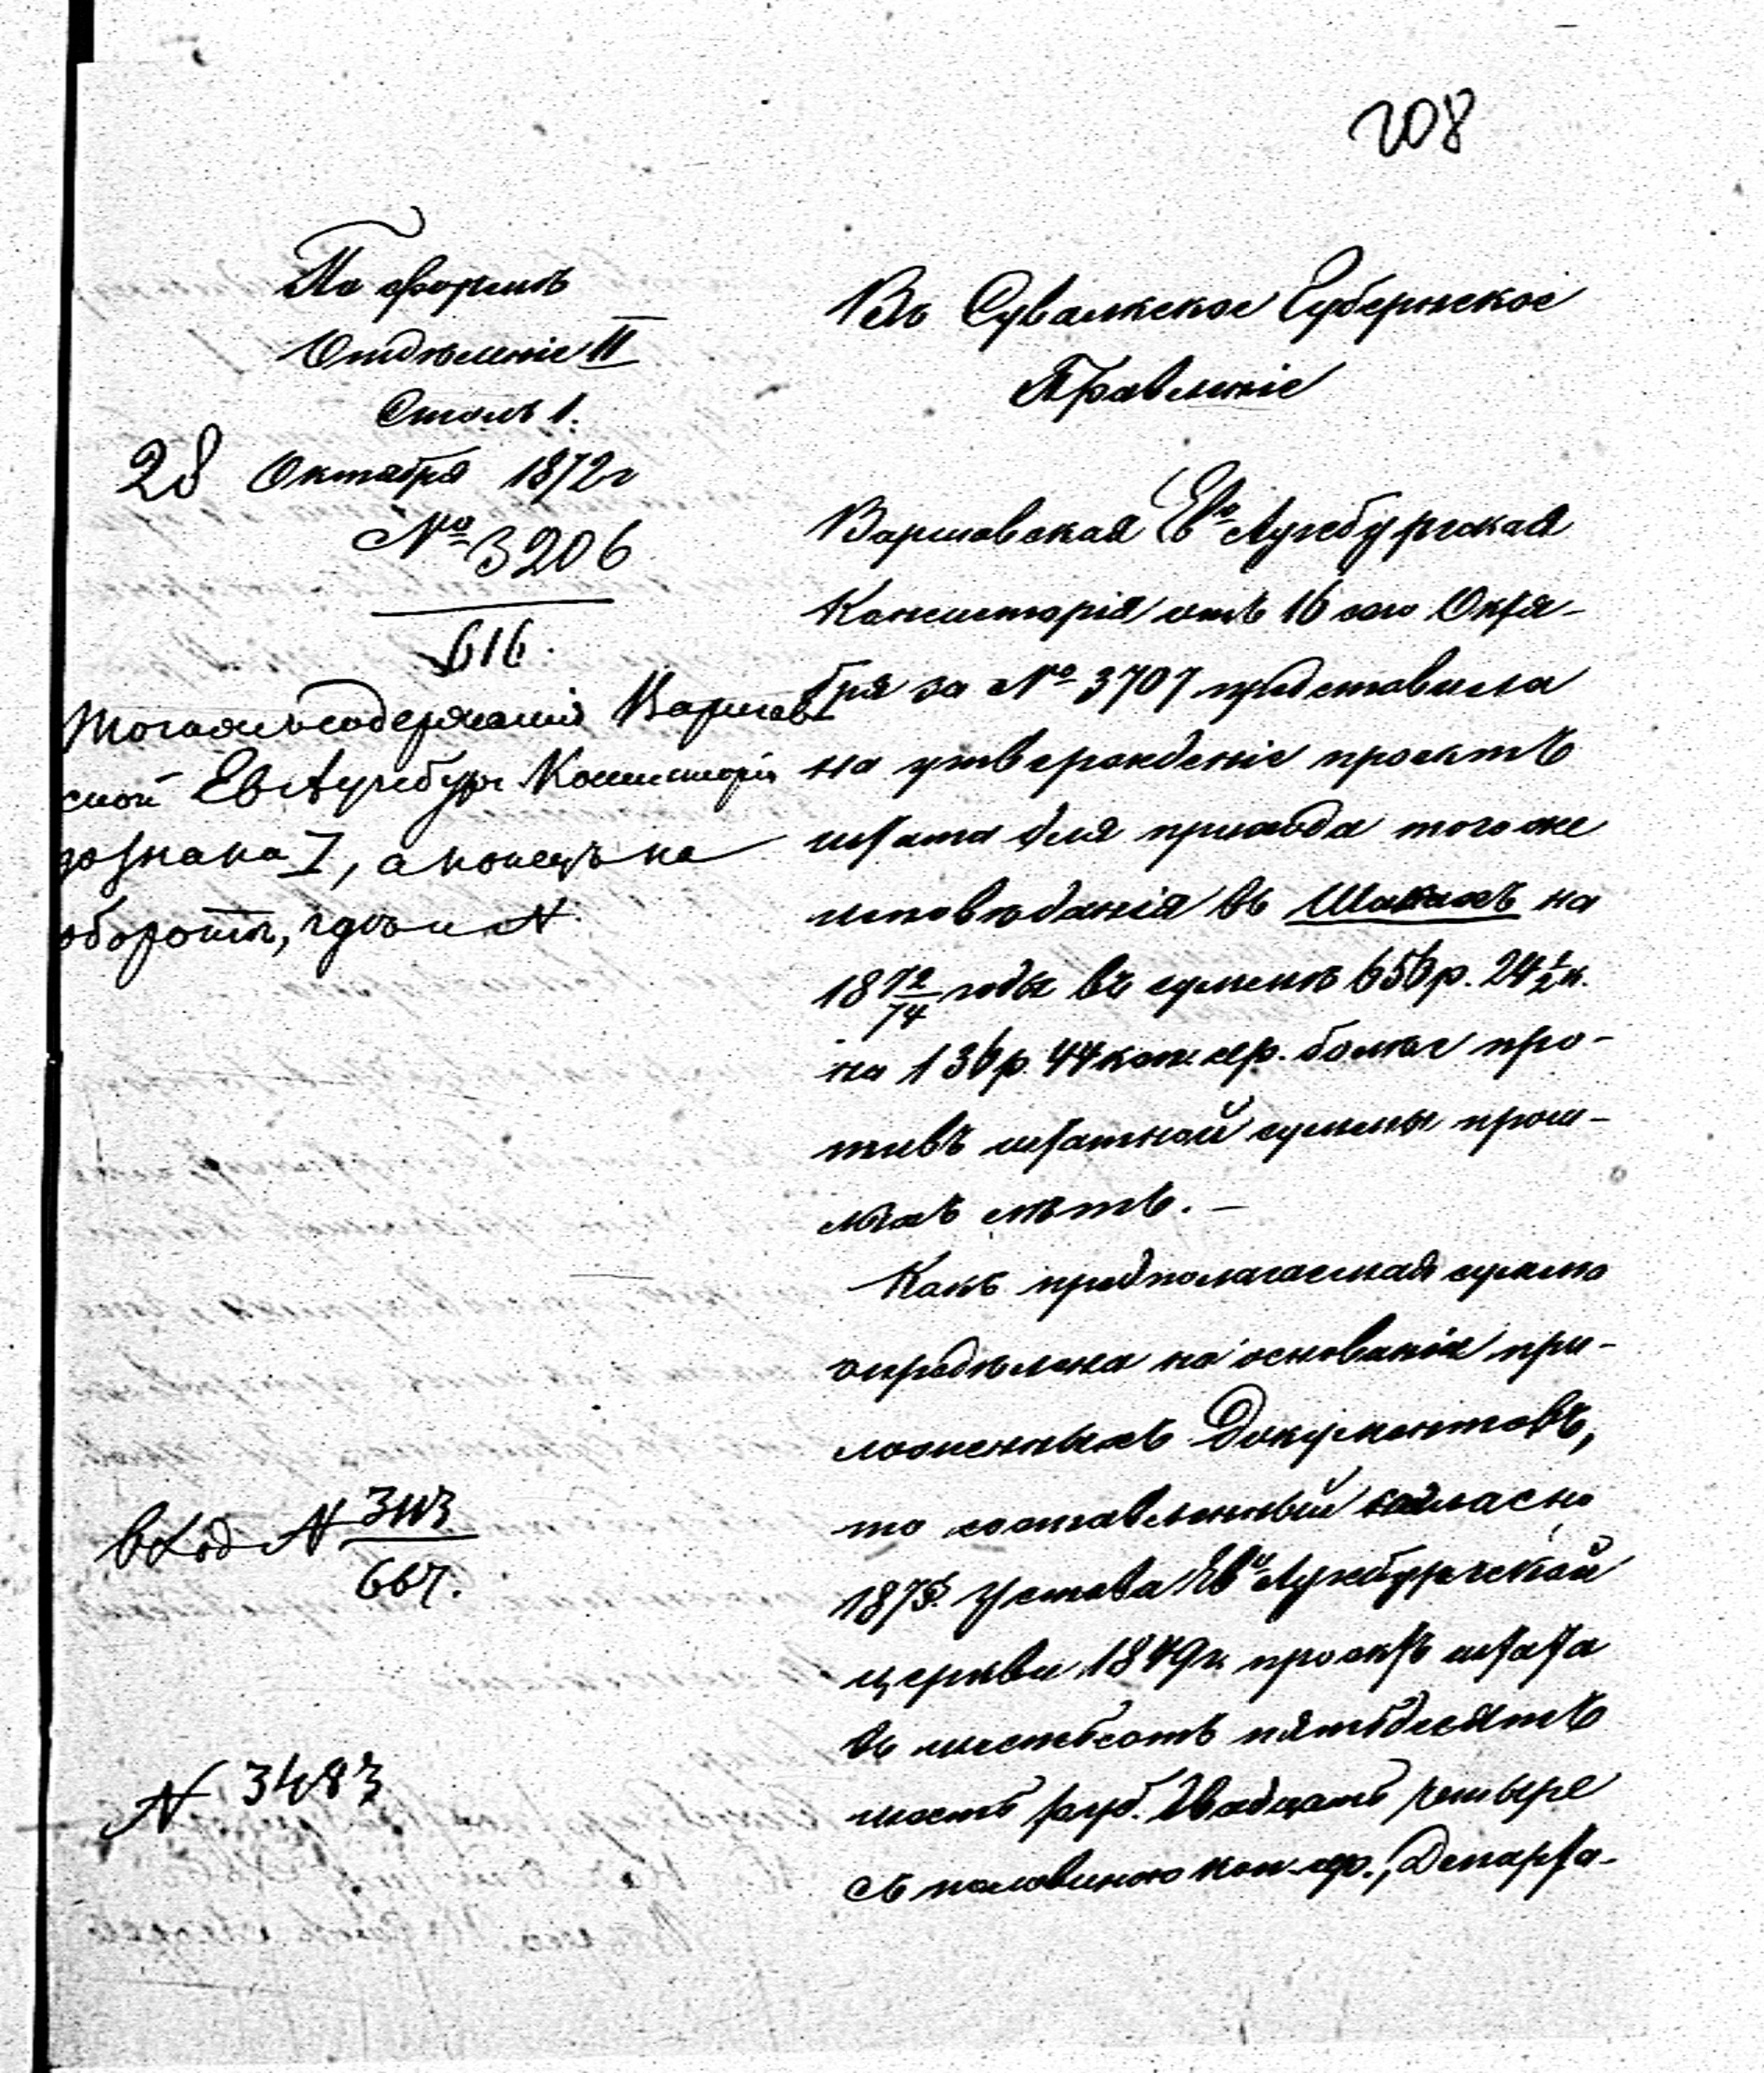 208
По формѣ
Отдѣленіе II
Столъ 1.
28 Октября 1872 г
№ 3206
616.
Тогожъ содержанія Варшав
ской Ев Аугсбург. Консисторіи
до знака I, а конецъ на
оборотѣ, гдѣ и N.
вход N 3113
667.
N 3483
Въ Сувалкское Губернское
Правленіе
Варшавская Ево Аугсбургская
Консисторія отъ 16 сего Октя-
бря за № 3707 представила
на утвержденіе проектъ
штата для прихода тогоже
исповѣданія въ Шакахъ на
1872/74 годы въ суммѣ 656 р. 24 1/2 к.
на 136 р. 44 коп. сер. болѣе про-
тивъ штатной суммы прош-
лыхъ лѣтъ. –
Какъ предполагаемая сумма
опредѣлена на основаніи при-
ложенныхъ Документовъ,
то составленный согласно
187 §. Устава Ев Аугсбургской
церкви 1849 г. проектъ штата
въ шестьсотъ пятьдесятъ
шесть руб. двадцать четыре
съ половиною коп. сер., Департа-